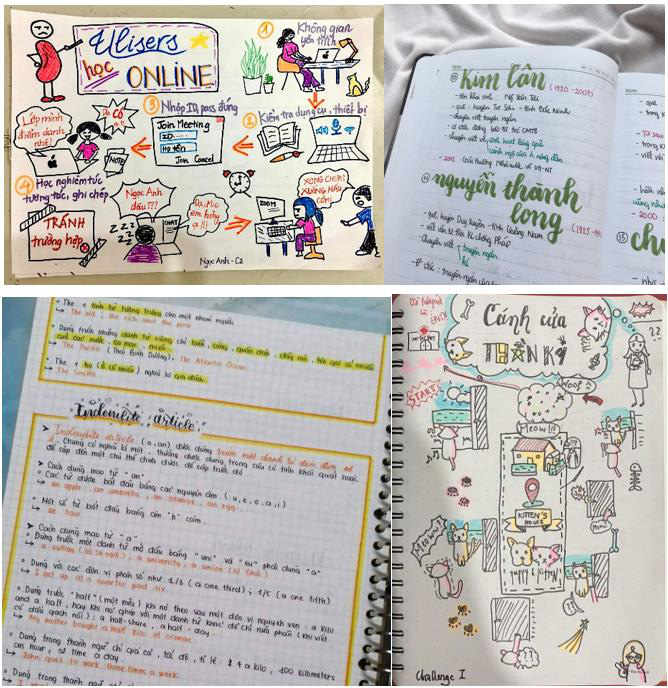 Ulisers
học ONLINE
①
Không gian
yên tĩnh
② Kiểm tra dụng cụ, thiết bị
③ Nhập ID, pass đúng
Join Meeting
ID
Họ tên
Join Cancel
Lớp mình
điểm danh
nhé!
Dạ Có
NOTE
④ Học nghiêm túc
tương tác, ghi chép
TRÁNH
trường hợp
Ngọc Anh
đâu???
ZZZ
CHAT
Dạ, Mic
em hỏng
ạ!!!
ZOOM
XONG CHƯA?
XUỐNG NẤU
CƠM!
Ngọc Anh - C2
Kim lân (1920 - 2007)
- quê: huyện Từ Sơn - tỉnh Bắc Ninh
- chuyên viết truyện ngắn
- 2001
nguyễn thành
long (1925 -
- quê: huyện Duy Xuyên - tỉnh Quảng Nam
- viết văn từ thời k/c chống Pháp
- chuyên viết truyện ngắn
kí
⑬
- 2000
• The + tính từ tượng trưng cho một nhóm người
→ The old; the rich and the poor
• Dùng trước những danh từ riêng chỉ biển, sông, quần đảo, dãy núi, tên gọi số nhiều
của các nước, sa mạc, miền
→ The Pacific (Thái Bình Dương), The Atlantic Ocean
• The + họ (ở số nhiều) nghĩa là gia đình
→ The Smiths
Indenibite article
➤ Indenibite article (a, an) được dùng trước một danh từ đếm được số
ít. Chúng có nghĩa là một, thường được dùng trong câu có tính khái quát hoặc
đề cập đến một chủ thể chưa được đề cập trước đó
➤ Cách dùng mạo từ "an"
• Các từ được bắt đầu bằng các nguyên âm (u, e, o, a, i)
→ an apple, an umbrella, an orange, an egg
• Một số từ bắt đầu bằng âm "h" câm
→ an hour
➤ Cách dùng mạo từ "a"
• Đứng trước một danh từ mở đầu bằng "uni" và "eu" phải dùng "a"
• Dùng với các đơn vị phân số như 1/3 (a one third); 1/5 (a one fifth)
→ I get up at a quarter past six
• Dùng trước "half" (một nửa) khi nó theo sau một đơn vị nguyên vẹn: a kilo
and a half, hay khi nó ghép với một danh từ khác để chỉ nửa phần (khi viết
có dấu gạch nối): a half-share, a half-day
→ My mother bought a half kilo of orange
• Dùng trong thành ngữ chỉ giá cả, tốc độ, tỉ lệ: $4 a kilo, 100 kilometers
an hour, 2 time a day
→ John goes to work three times a week
• Dùng trong thành ngữ
END!
START!
Cánh cửa
THẦN KỲ
Woof!!
Meow!!!
KITTEN'S
HOUSE
Meow!
Puppy & Kitty
Challenge 1